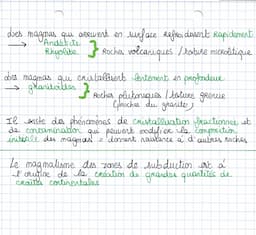 des magmas qui arrivent en surface refroidissent rapidement
→ Andésite
Rhyolite } Roches volcaniques / texture microlitique
des magmas qui cristallisent lentement en profondeur
→ granitoïdes
} Roches plutoniques / texture grenue
(proches du granite)
Il existe des phénomènes de cristallisation fractionnée et
de contamination qui peuvent modifier la composition
initiale des magmas = donnent naissance à d'autres roches
Le magmatisme des zones de subduction est à
l'origine de la création de grandes quantités de
croûtes continentales